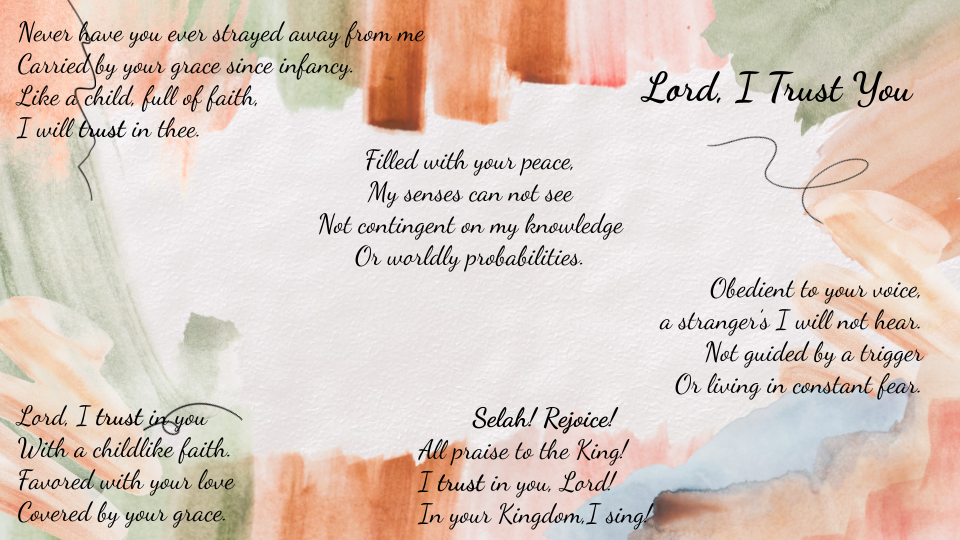 Lord, I Trust You
Never have you ever strayed away from me
Carried by your grace since infancy.
Like a child, full of faith,
I will trust in thee.
Filled with your peace,
My senses can not see
Not contingent on my knowledge
Or worldly probabilities.
Obedient to your voice,
a stranger's I will not hear.
Not guided by a trigger
Or living in constant fear.
Lord, I trust in you
With a childlike faith.
Favored with your love
Covered by your grace.
Selah! Rejoice!
All praise to the King!
I trust in you, Lord!
In your Kingdom,I sing!